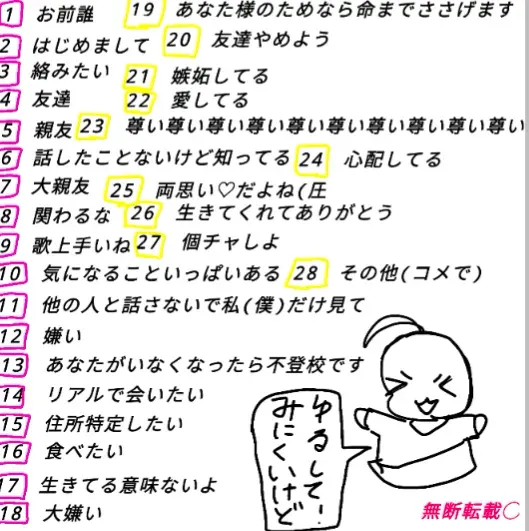 1 お前誰
2 はじめまして
3 絡みたい
4 友達
5 親友
6 話したことないけど知ってる
7 大親友
8 関わるな
9 歌上手いね
10 気になることいっぱいある
11 他の人と話さないで私(僕)だけ見て
12 嫌い
13 あなたがいなくなったら不登校です
14 リアルで会いたい
15 住所特定したい
16 食べたい
17 生きてる意味ないよ
18 大嫌い
19 あなた様のためなら命までささげます
20 友達やめよう
21 嫉妬してる
22 愛してる
23 尊い尊い尊い尊い尊い尊い尊い尊い尊い尊い
24 心配してる
25 両思い♡だよね(圧
26 生きてくれてありがとう
27 個チャしよ
28 その他(コメで)
ゆるしてー!
みにくいけど
無断転載〇